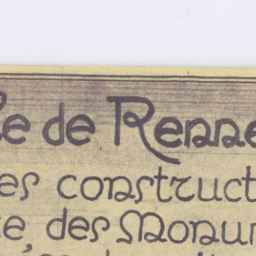 le de Renne
es construct
te des Monum